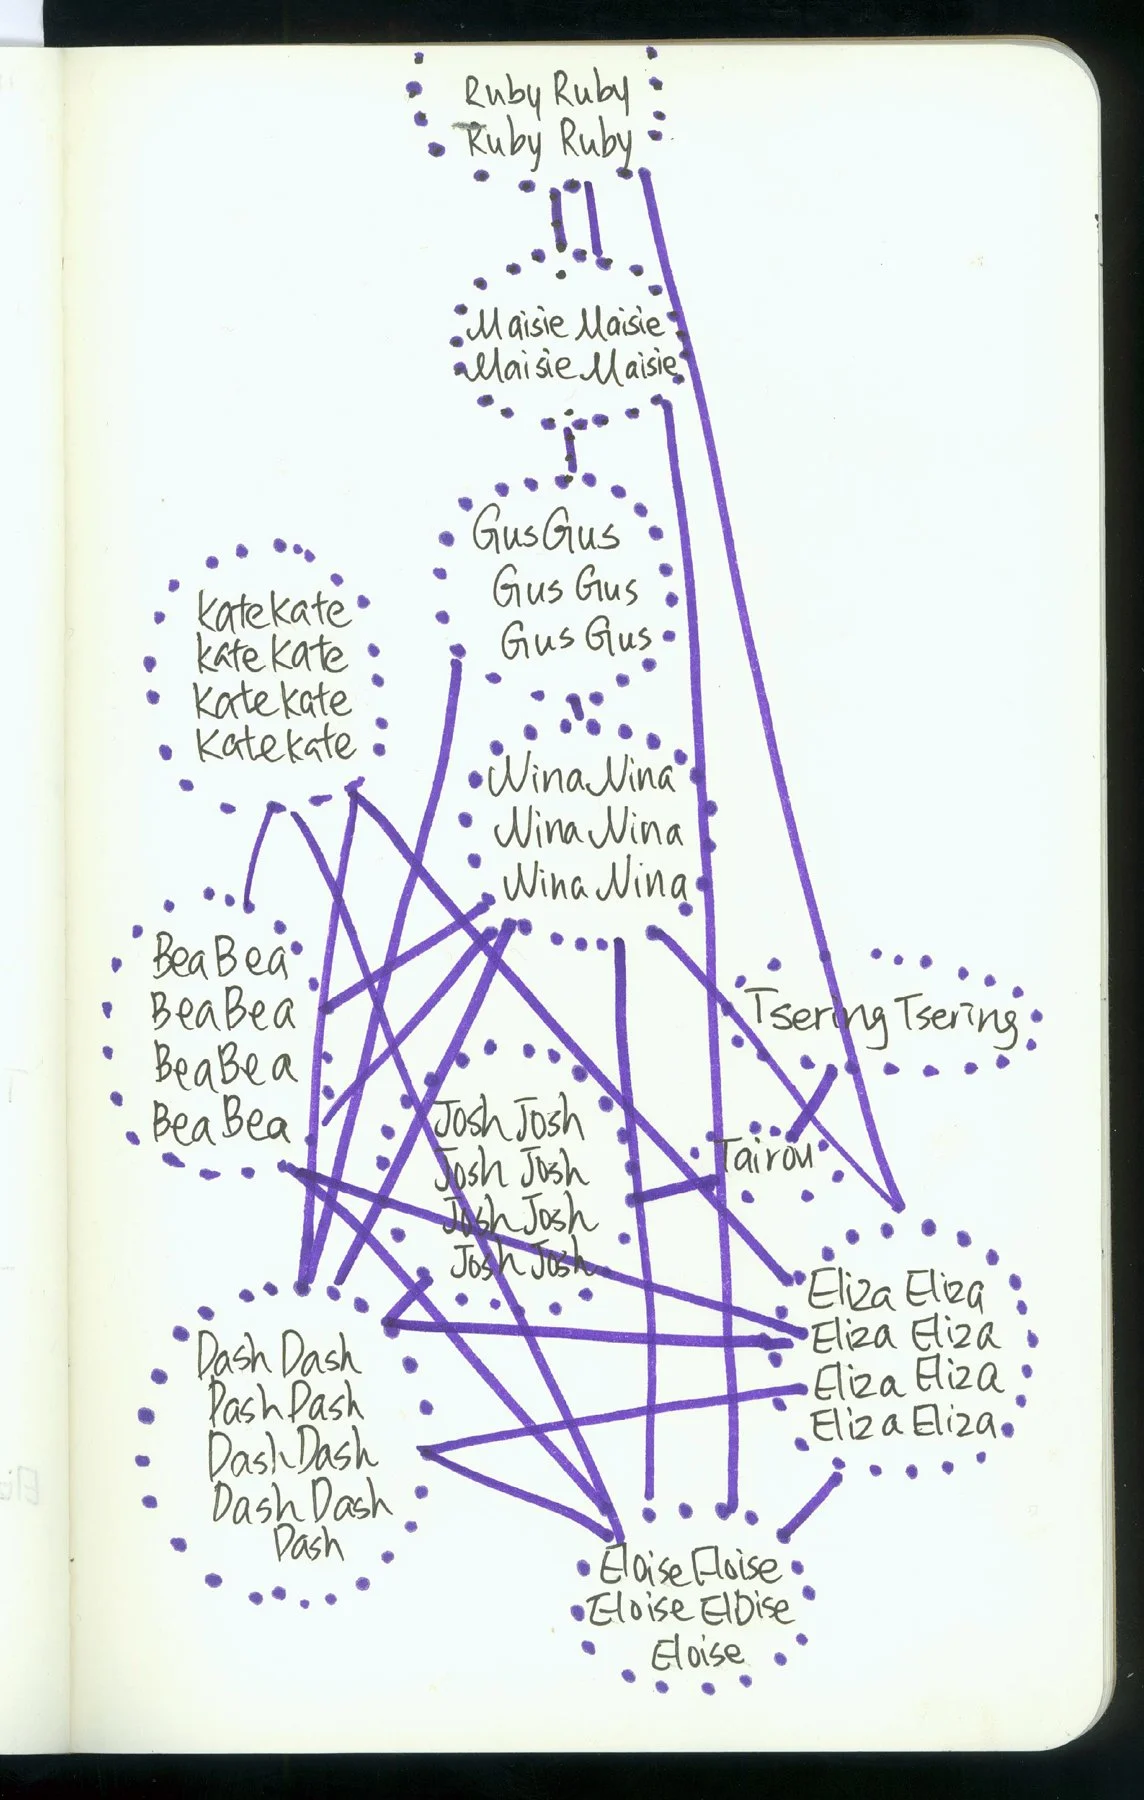 Ruby Ruby
Ruby Ruby
Maisie Maisie
Maisie Maisie
Gus Gus
Gus Gus
Gus Gus
Kate Kate
Kate Kate
Kate Kate
Kate Kate
Nina Nina
Nina Nina
Nina Nina
Bea Bea
Bea Bea
Bea Bea
Bea Bea
Tsering Tsering
Josh Josh
Josh Josh
Josh Josh
Josh Josh
Tairou
Eliza Eliza
Eliza Eliza
Eliza Eliza
Eliza Eliza
Dash Dash
Dash Dash
Dash Dash
Dash Dash
Dash
Eloise Eloise
Eloise Eloise
Eloise